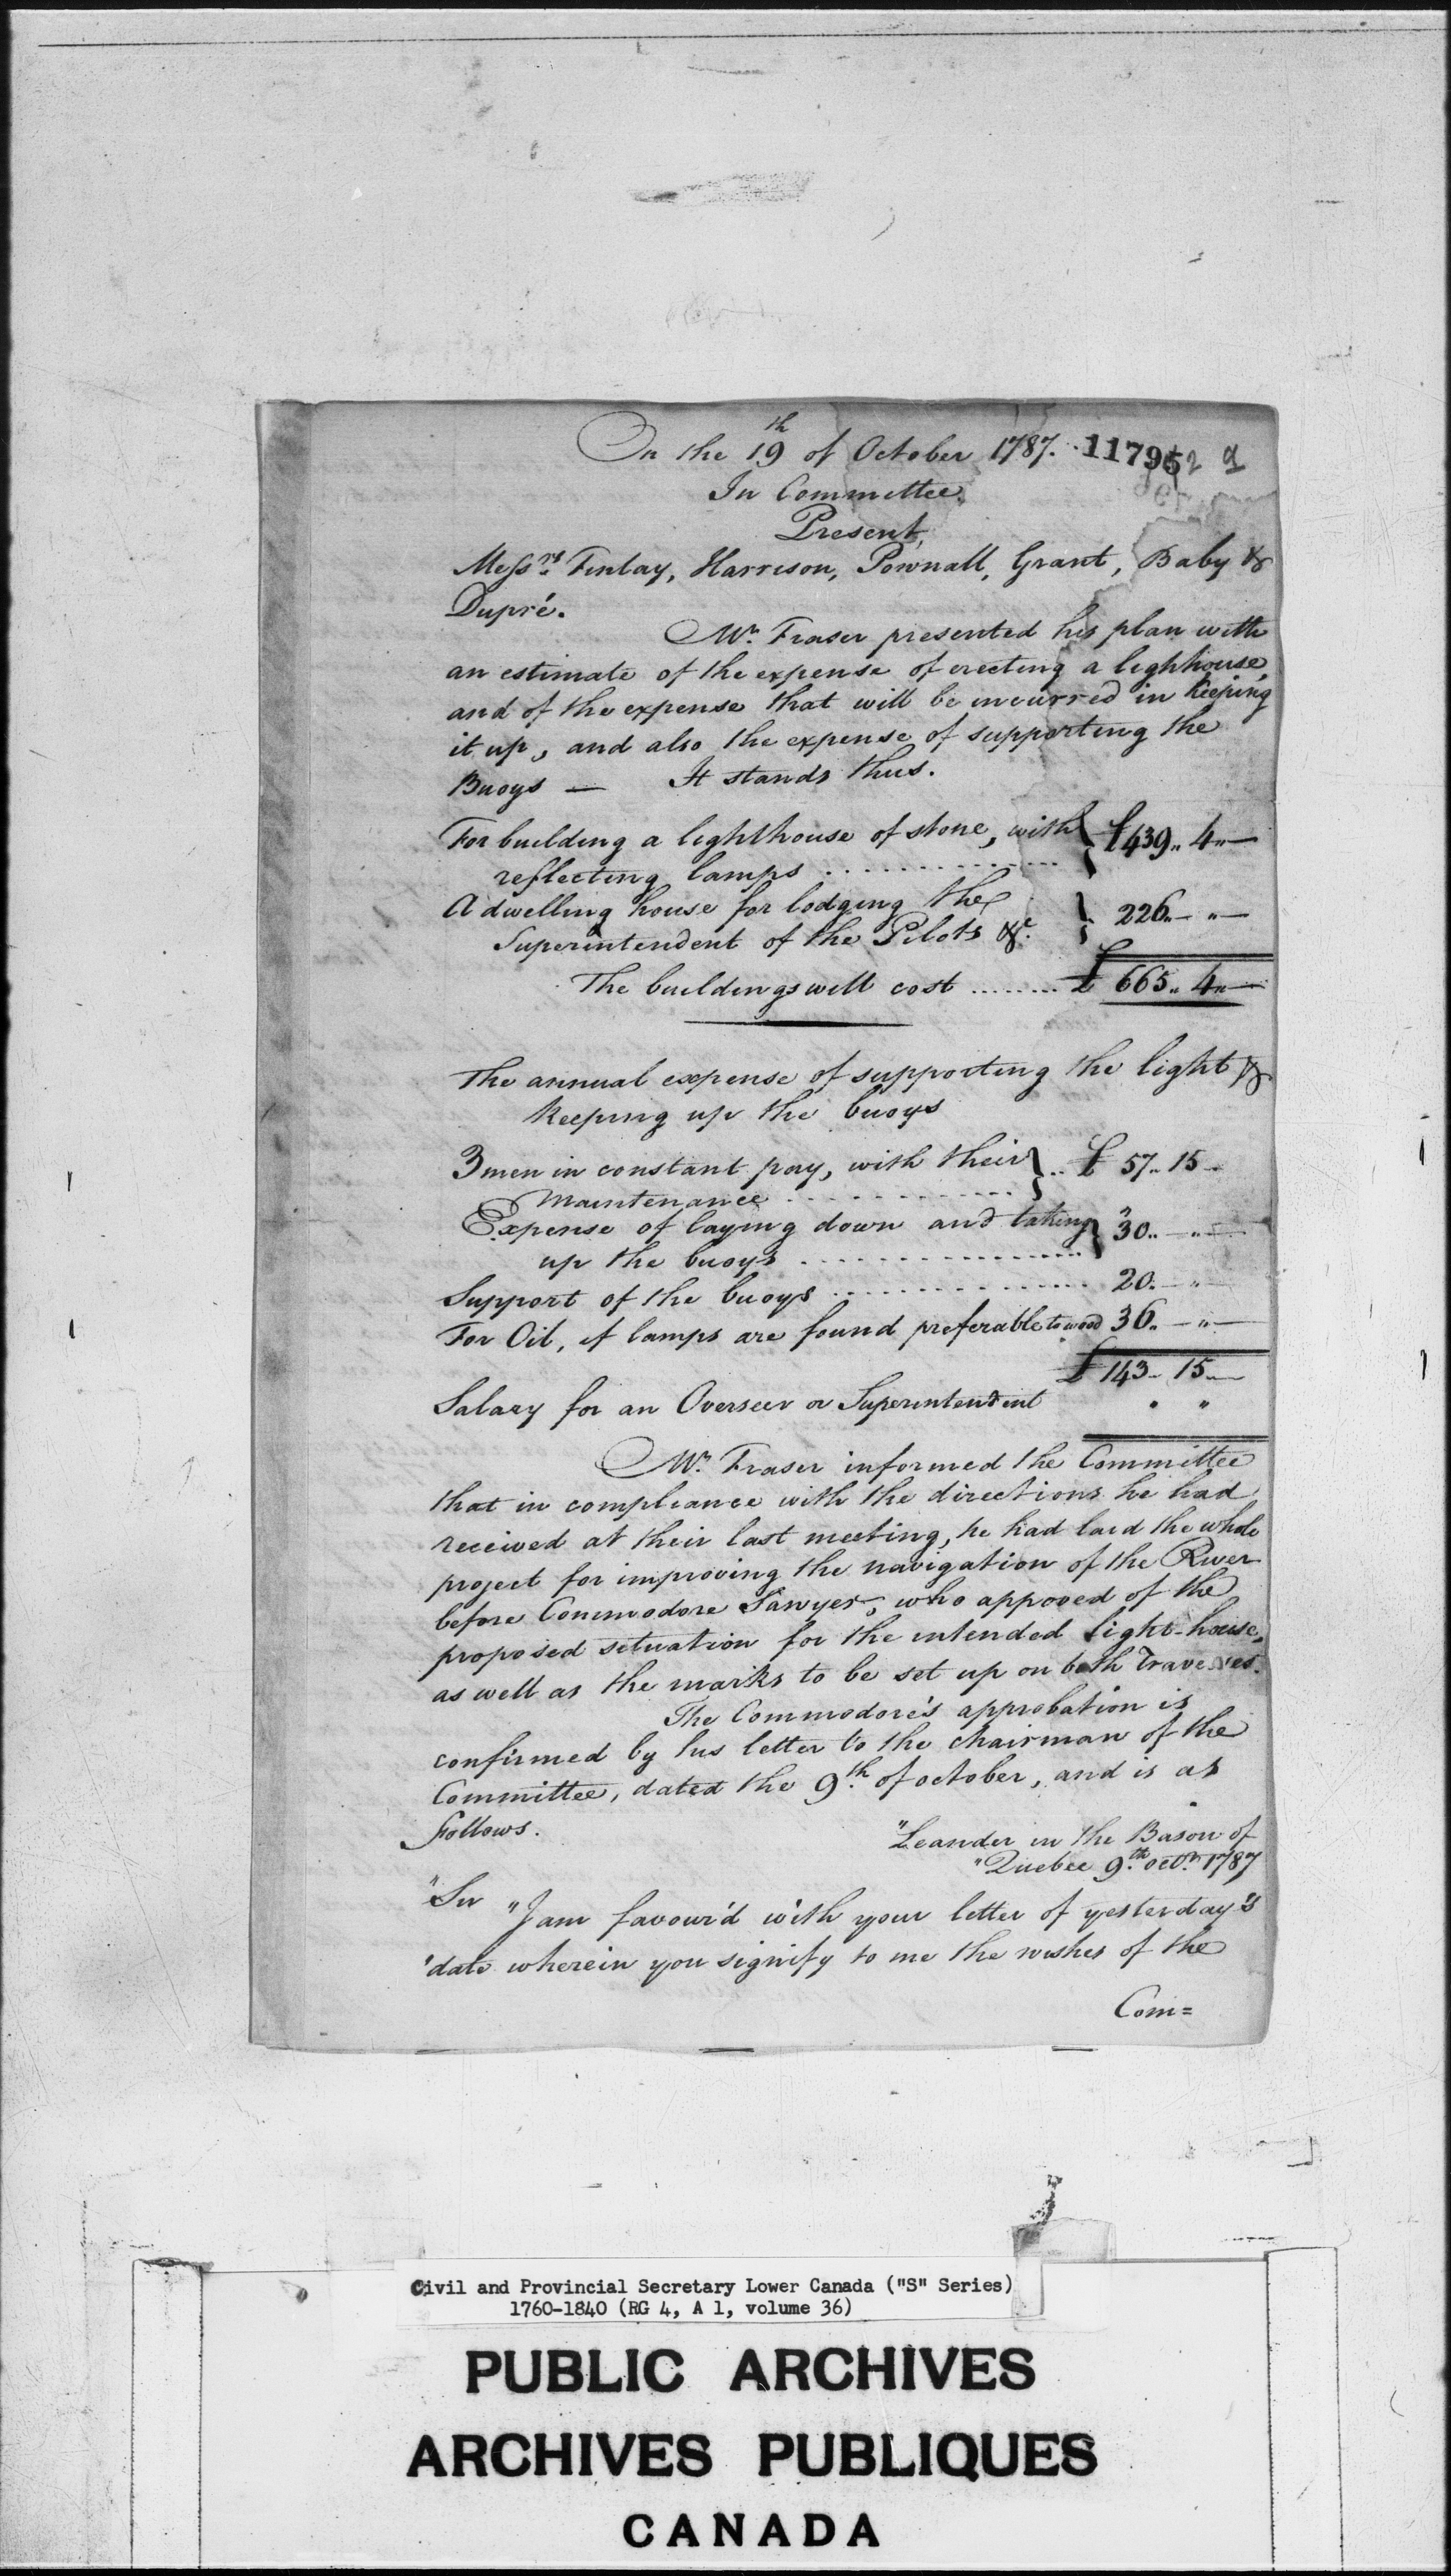 On the 19th of October 1787. 11795
In Committee.
Present,
Messrs. Finlay, Harrison, Pownall, Grant, Baby &
Dupré.
Mr. Fraser presented his plan with
an estimate of the expense of erecting a lighhouse,
and of the expense that will be incurred in keeping
it up, and also the expense of supporting the
Buoys — It stands thus.
For building a lighthouse of stone, with } £439.. 4..—
reflecting lamps ............
A dwelling house for lodging the } 226..— "—
Superintendent of the Pilots &c.
The buildings will cost ......... £ 665.. 4..—
The annual expense of supporting the light &
keeping up the buoys
3 men in constant pay, with their } .. £ 57.. 15..
Maintenance ............
Expense of laying down and taking } 30.. — "—
up the buoys ............
Support of the buoys ............ 20.— "
For Oil, if lamps are found preferable to wood 36.. — "—
£ 143.. 15..—
Salary for an Overseer or Superintendent " "
Mr. Fraser informed the Committee
that in compliance with the directions he had
received at their last meeting, he had laid the whole
project for improving the navigation of the River
before Commodore Sawyer, who approved of the
proposed situation for the intended light-house,
as well as the marks to be set up on both Traverses.
The Commodore's approbation is
confirmed by his letter to the chairman of the
Committee, dated the 9th. of october, and is as
follows.
"Leander in the Bason of
"Quebec 9th. octr. 1787
"Sir
"I am favour'd with your letter of yesterday's
"date wherein you signify to me the wishes of the
Com=
Civil and Provincial Secretary Lower Canada ("S" Series)
1760-1840 (RG 4, A 1, volume 36)
PUBLIC ARCHIVES
ARCHIVES PUBLIQUES
CANADA